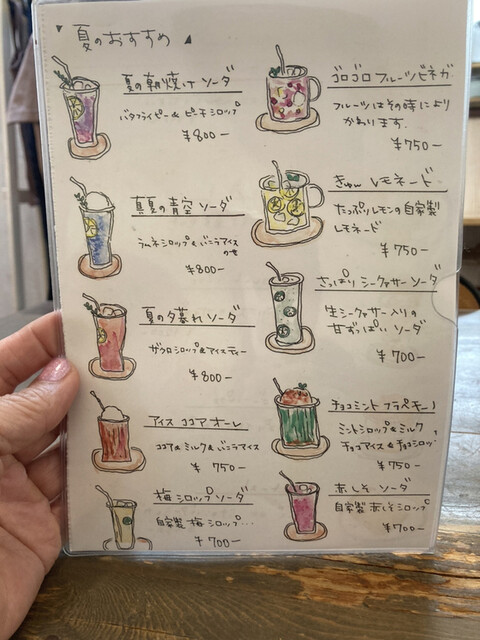 夏のおすすめ
夏の朝焼け ソーダ
バタフライピー & ピーチシロップ
¥800-
真夏の青空 ソーダ
ラムネシロップ & バニラアイス
のせ
¥800-
夏の夕暮れ ソーダ
ザクロシロップ & アイスティー
¥800-
アイス ココア オーレ
ココア & ミルク & バニラアイス
¥ 750-
梅シロップソーダ
自家製 梅シロップ...
¥700-
ゴロゴロ フルーツビネガー
フルーツはその時により
かわります.
¥750-
きゅん レモネード
たっぷりレモンの自家製
レモネード
¥750-
さっぱり シークヮサーソーダ
生シークヮサー入りの
甘ずっぱい ソーダ
¥700-
チョコミント フラペチーノ
ミントシロップ & ミルク
チョコアイス & チョコシロップ
¥750-
赤しそ ソーダ
自家製 赤しそシロップ
¥700-